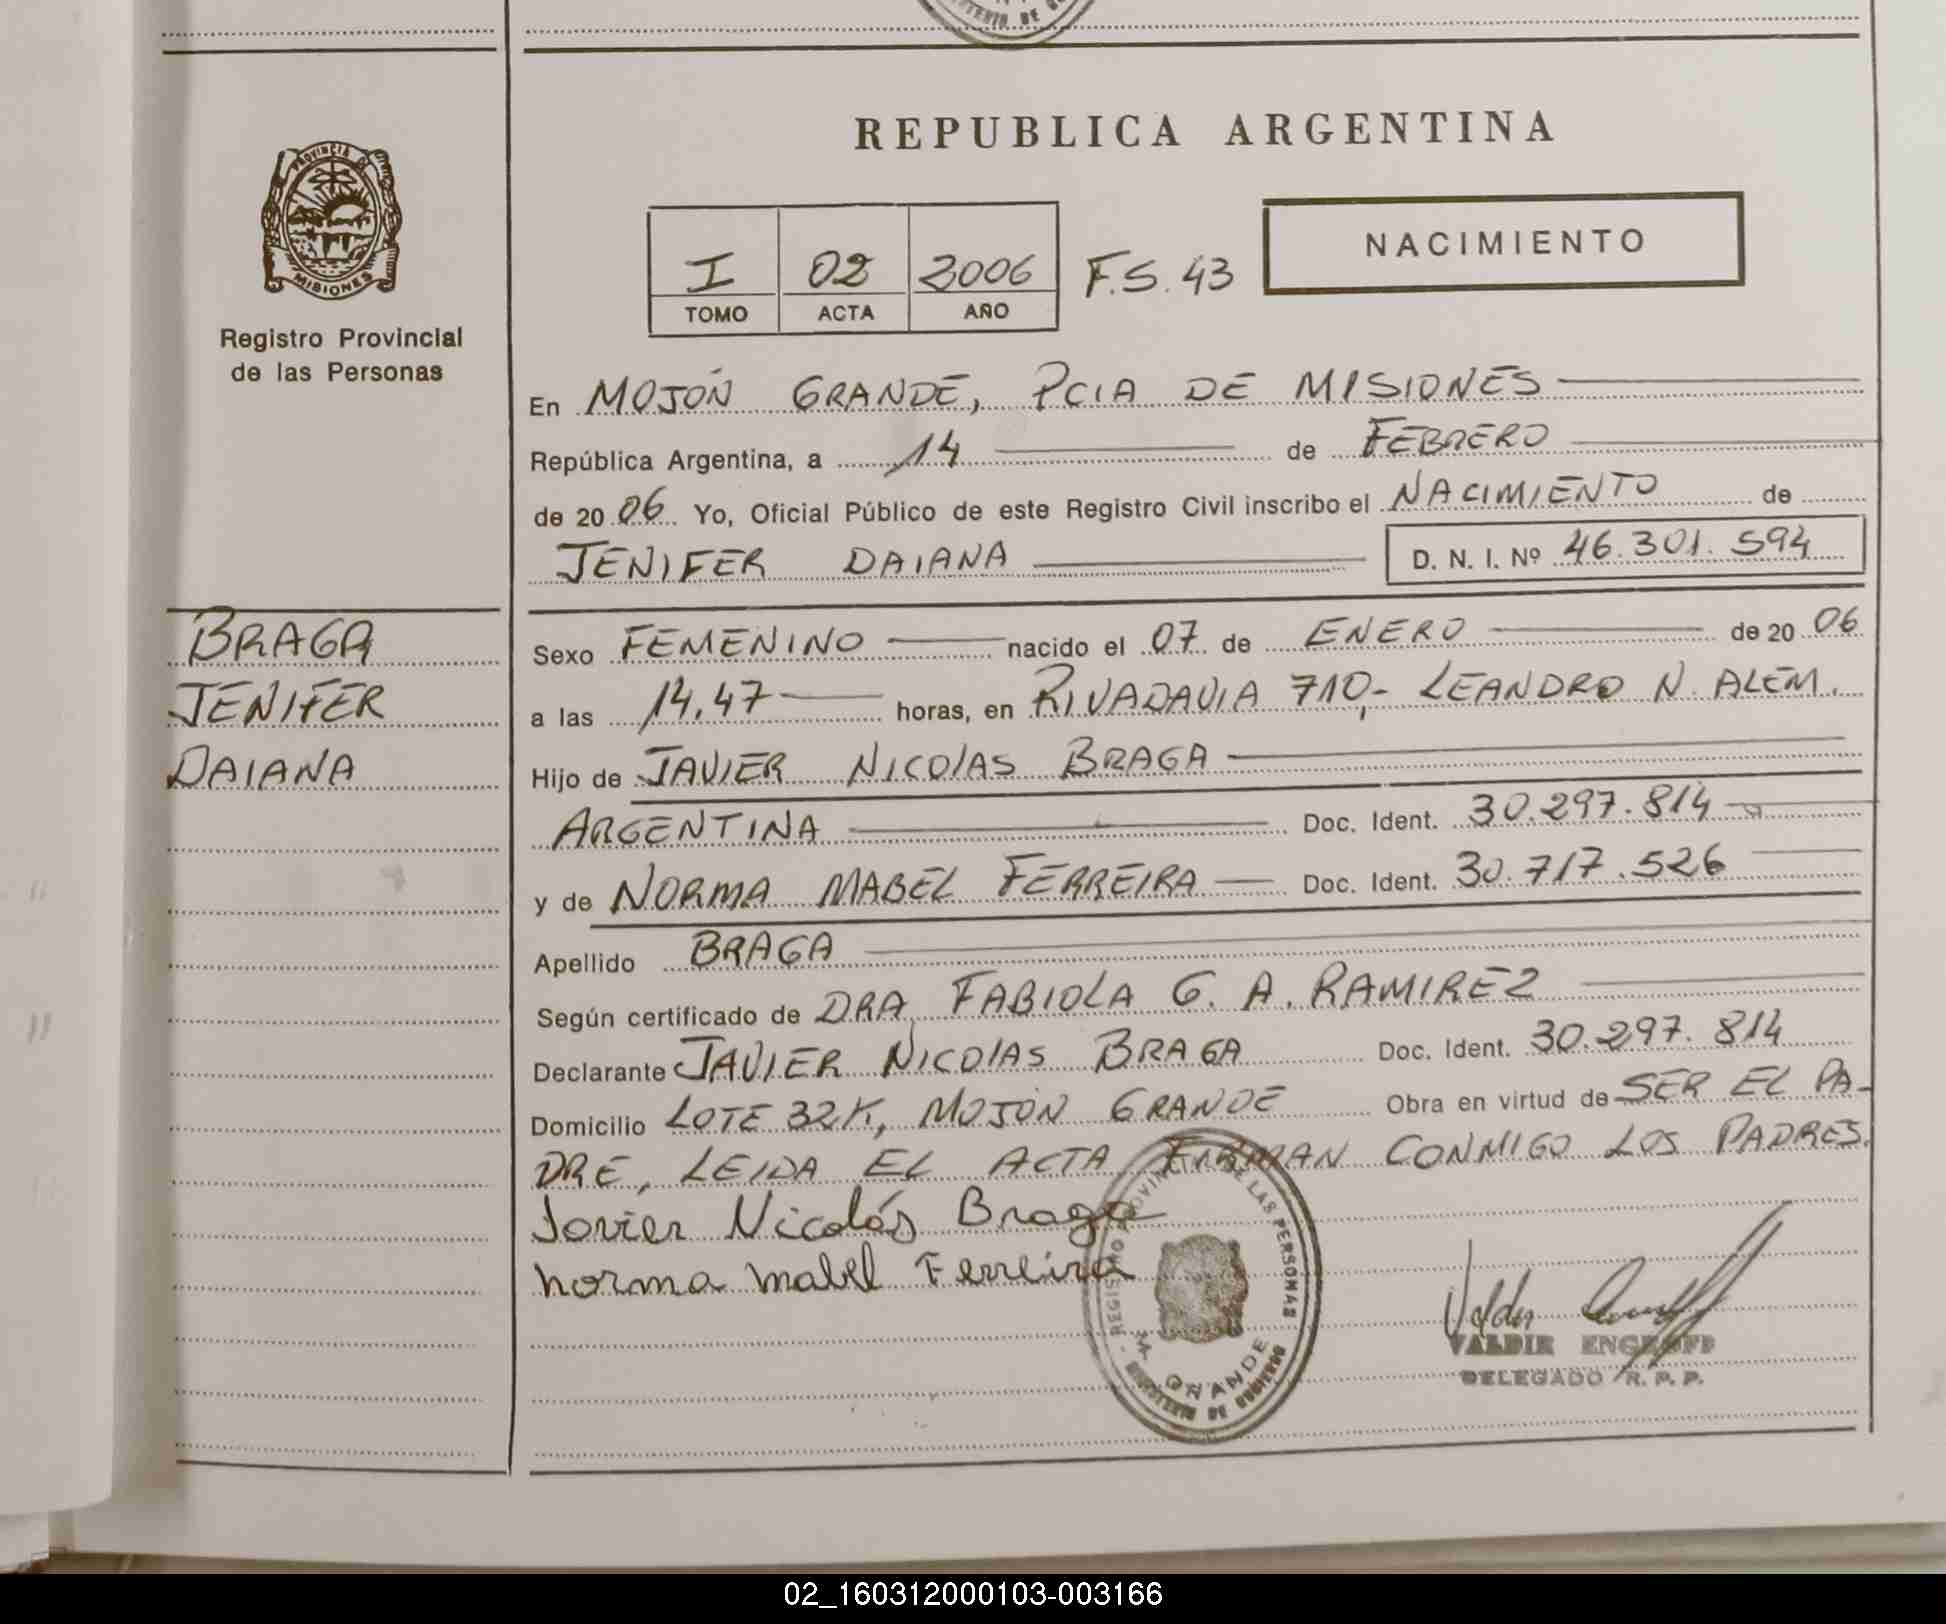 MINISTERIO DE
PROVINCIA DE
MISIONES
Registro Provincial
de las Personas
BRAGA
JENIFER
DAIANA
REPUBLICA ARGENTINA
I 02 2006 F.S. 43 NACIMIENTO
TOMO ACTA AÑO
En MOJÓN GRANDE, PCIA DE MISIONES
República Argentina, a 14 de FEBRERO
de 20 06 Yo, Oficial Público de este Registro Civil inscribo el NACIMIENTO de
JENIFER DAIANA D. N. I. Nº 46.301.594
Sexo FEMENINO nacido el 07 de ENERO de 20 06
a las 14,47 horas, en RIVADAVIA 710,- LEANDRO N. ALEM.
Hijo de JAVIER NICOLAS BRAGA
ARGENTINA Doc. Ident. 30.297.814
y de NORMA MABEL FERREIRA Doc. Ident. 30.717.526
Apellido BRAGA
Según certificado de DRA FABIOLA G. A. RAMIREZ
Declarante JAVIER NICOLAS BRAGA Doc. Ident. 30.297.814
Domicilio LOTE 32K, MOJÓN GRANDE Obra en virtud de SER EL PA-
DRE, LEIDA EL ACTA FIRMAN CONMIGO LOS PADRES.
Javier Nicolás Braga
norma mabel Ferreira
REGISTRO PROVINCIAL DE LAS PERSONAS
GRANDE
MINISTERIO DE GOBIERNO
VALDIR
DELEGADO R. P. P.
02_160312000103-003166